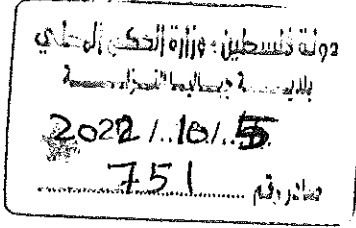 دولة فلسطين - وزارة الحكم المحلي
بلدية جباليا النزلة
2022/10/5
صادر رقم 751